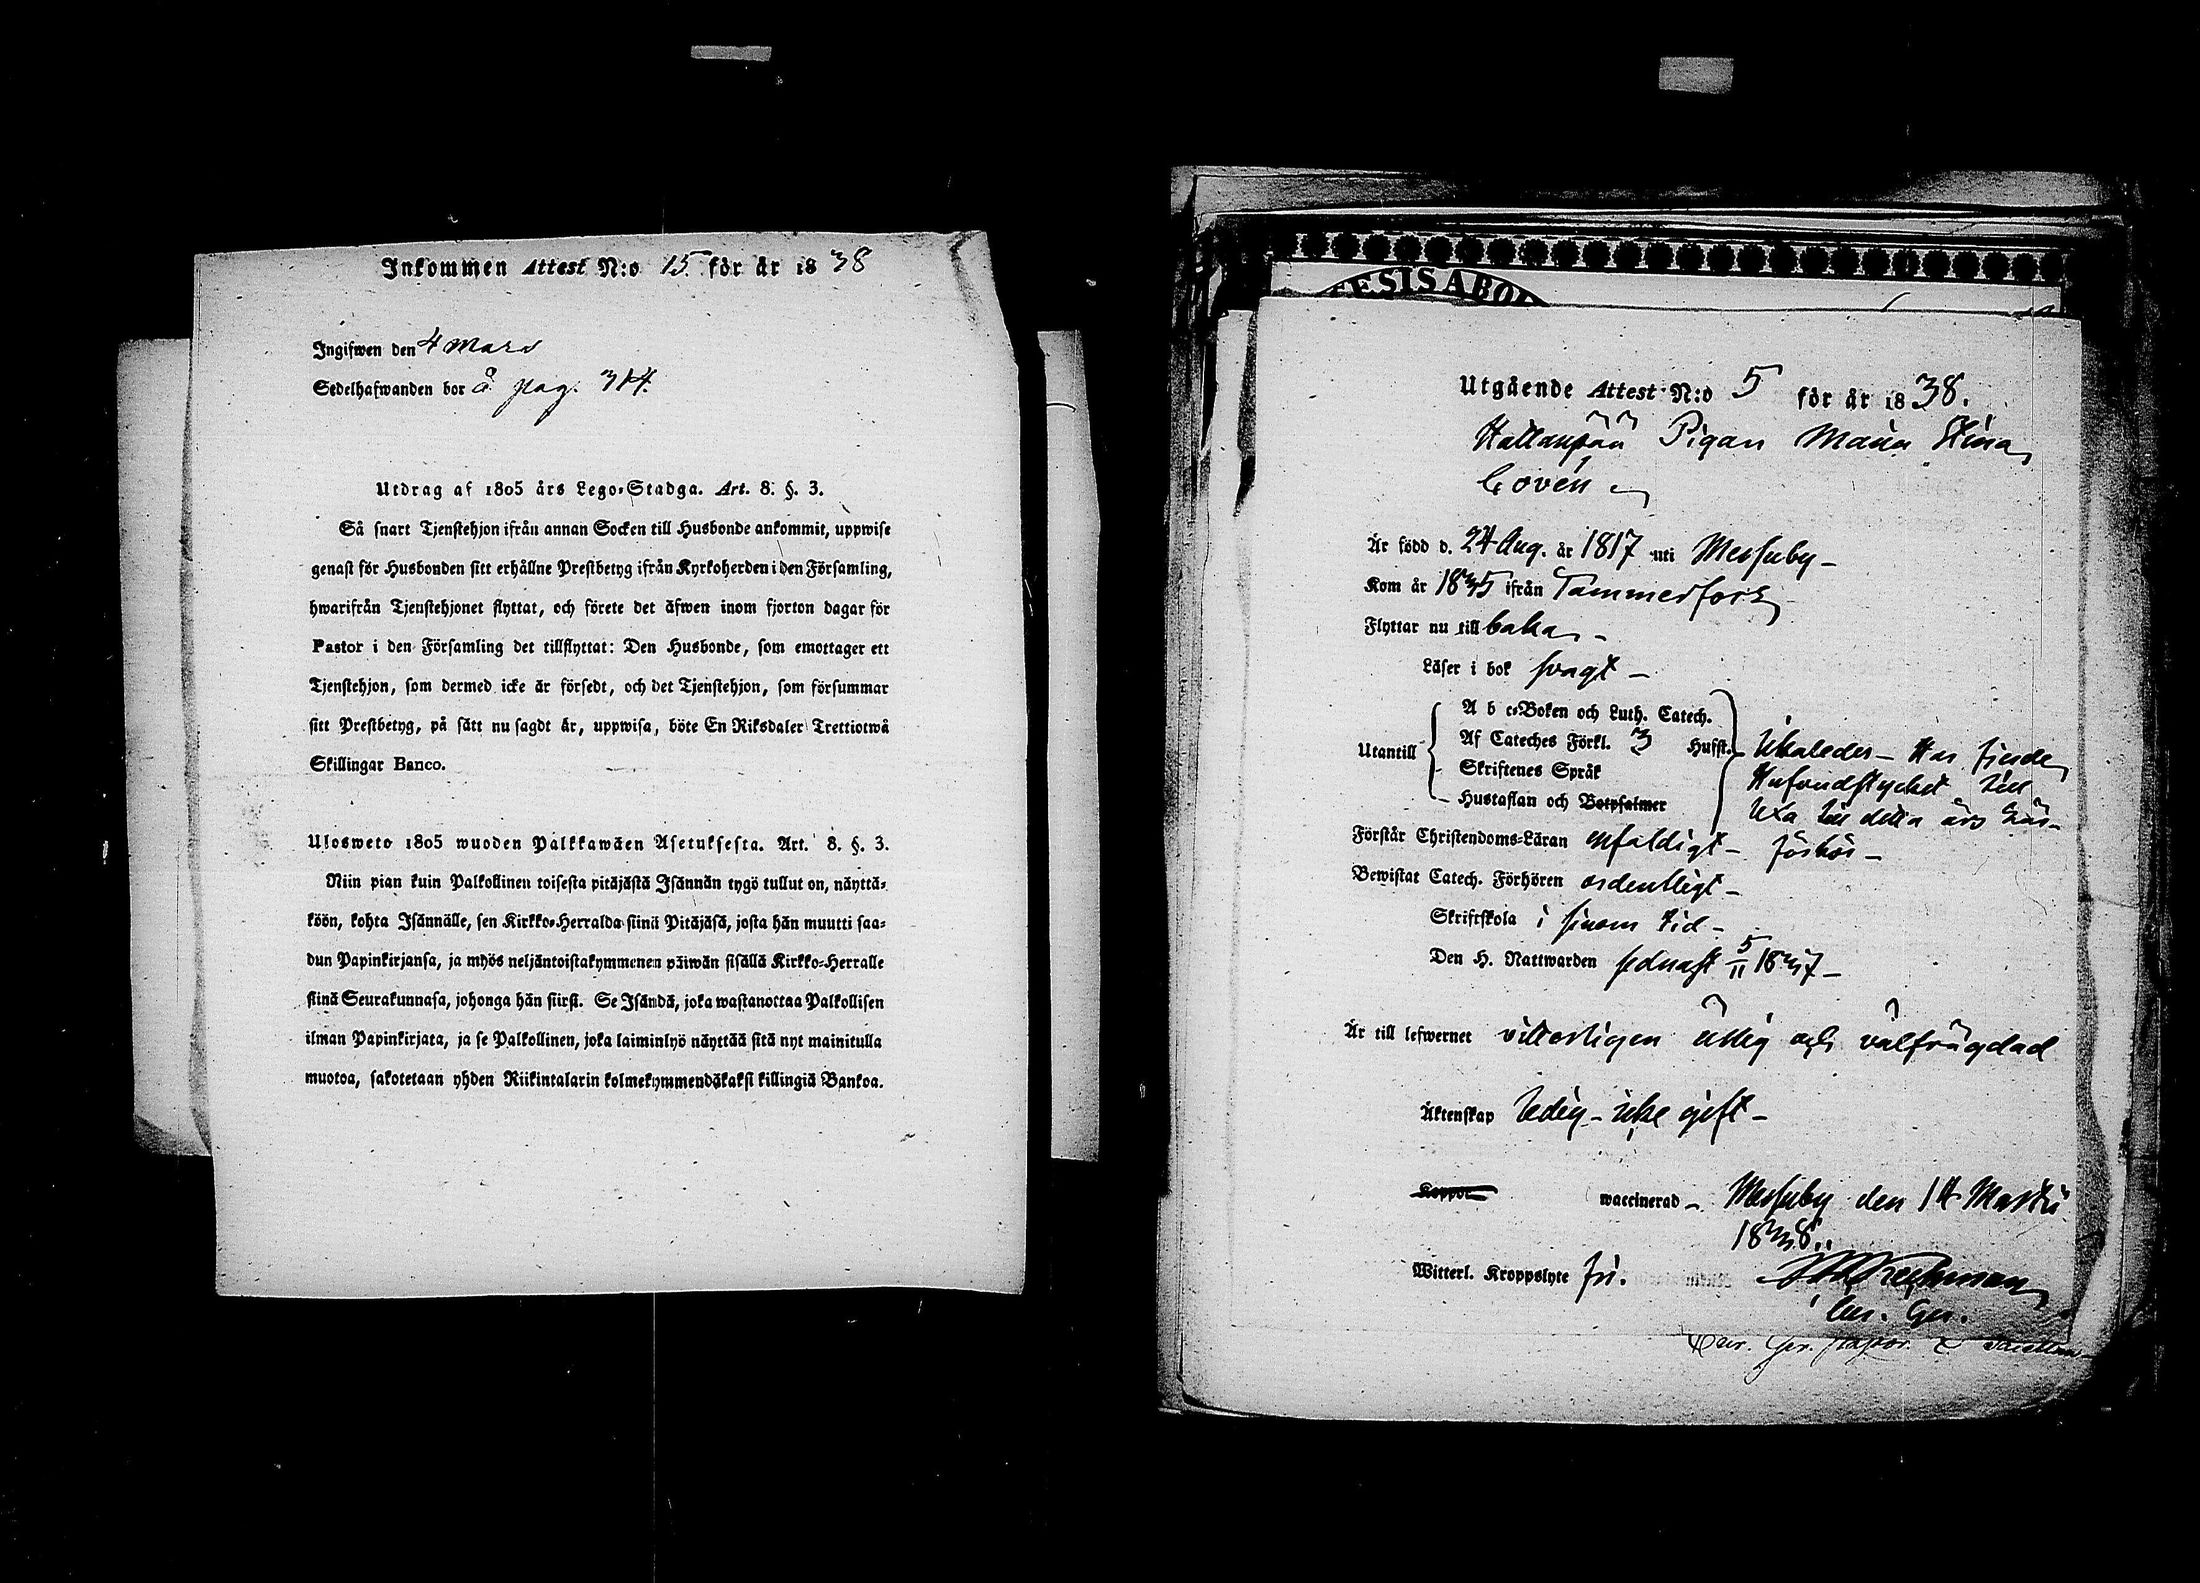 Inkommen Attest N:o 15 för år 1838
Ingifwen den 4 Mars
Sedelhafwanden bor å pag. 314.
Utdrag af 1805 års Lego-Stadga. Art. 8. §. 3.
Så snart Tjenstehjon ifrån annan Socken till Husbonde ankommit, uppwise
genast för Husbonden sitt erhållne Prestbetyg ifrån Kyrkoherden i den Församling,
hwarifrån Tjenstehjonet flyttat, och förete det äfwen inom fjorton dagar för
Pastor i den Församling det tillflyttat: Den Husbonde, som emottager ett
Tjenstehjon, som dermed icke är försedt, och det Tjenstehjon, som försummar
sitt Prestbetyg, på sätt nu sagdt är, uppwisa, böte En Riksdaler Trettiotwå
Skillingar Banco.
Ulosweto 1805 wuoden Palkkawäen Asetuksesta. Art. 8. §. 3.
Niin pian kuin Palkollinen toisesta pitäjästä Isännän tygö tullut on, näyttä-
köön, kohta Isännälle, sen Kirkko-Herralda siinä Pitäjäsä, josta hän muutti saa-
dun Papinkirjansa, ja myös neljäntoistakymmenen päiwän sisällä Kirkko-Herralle
siinä Seurakunnasa, johonga hän siirsi. Se Isändä, joka wastanottaa Palkollisen
ilman Papinkirjata, ja se Palkollinen, joka laiminlyö näyttää sitä nyt mainitulla
muotoa, sakotetaan yhden Riikintalarin kolmekymmendäkaksi killingiä Bankoa.
FESISABO
Utgående Attest N:o 5 för år 1838.
Hallanpää Pigan Maria Stina
Lovén
Är född d. 24 Aug. år 1817 uti Messuby
Kom år 1835 ifrån Tammerfors
Flyttar nu till baka
Läser i bok svagt
A b c-Boken och Luth. Catech.
Utantill Af Cateches Förkl. 3 Hufst. Utaledes - Har fjerde
Skriftenes Språk Hufvudstycket till
Hustaflan och Botpsalmer lexa till detta års Läs-
Förstår Christendoms-Läran enfaldigt förhör
Bewistat Catech. Förhören ordentligt
Skriftskola i sinom tid
Den H. Nattwarden sednast 5/11 1837
Är till lefwernet vitterligen ärlig och välfrägdad
Äktenskap ledig - icke gift
Koppor waccinerad Messuby den 14 Martii
1838.
Witterl. Kroppslyte fri.